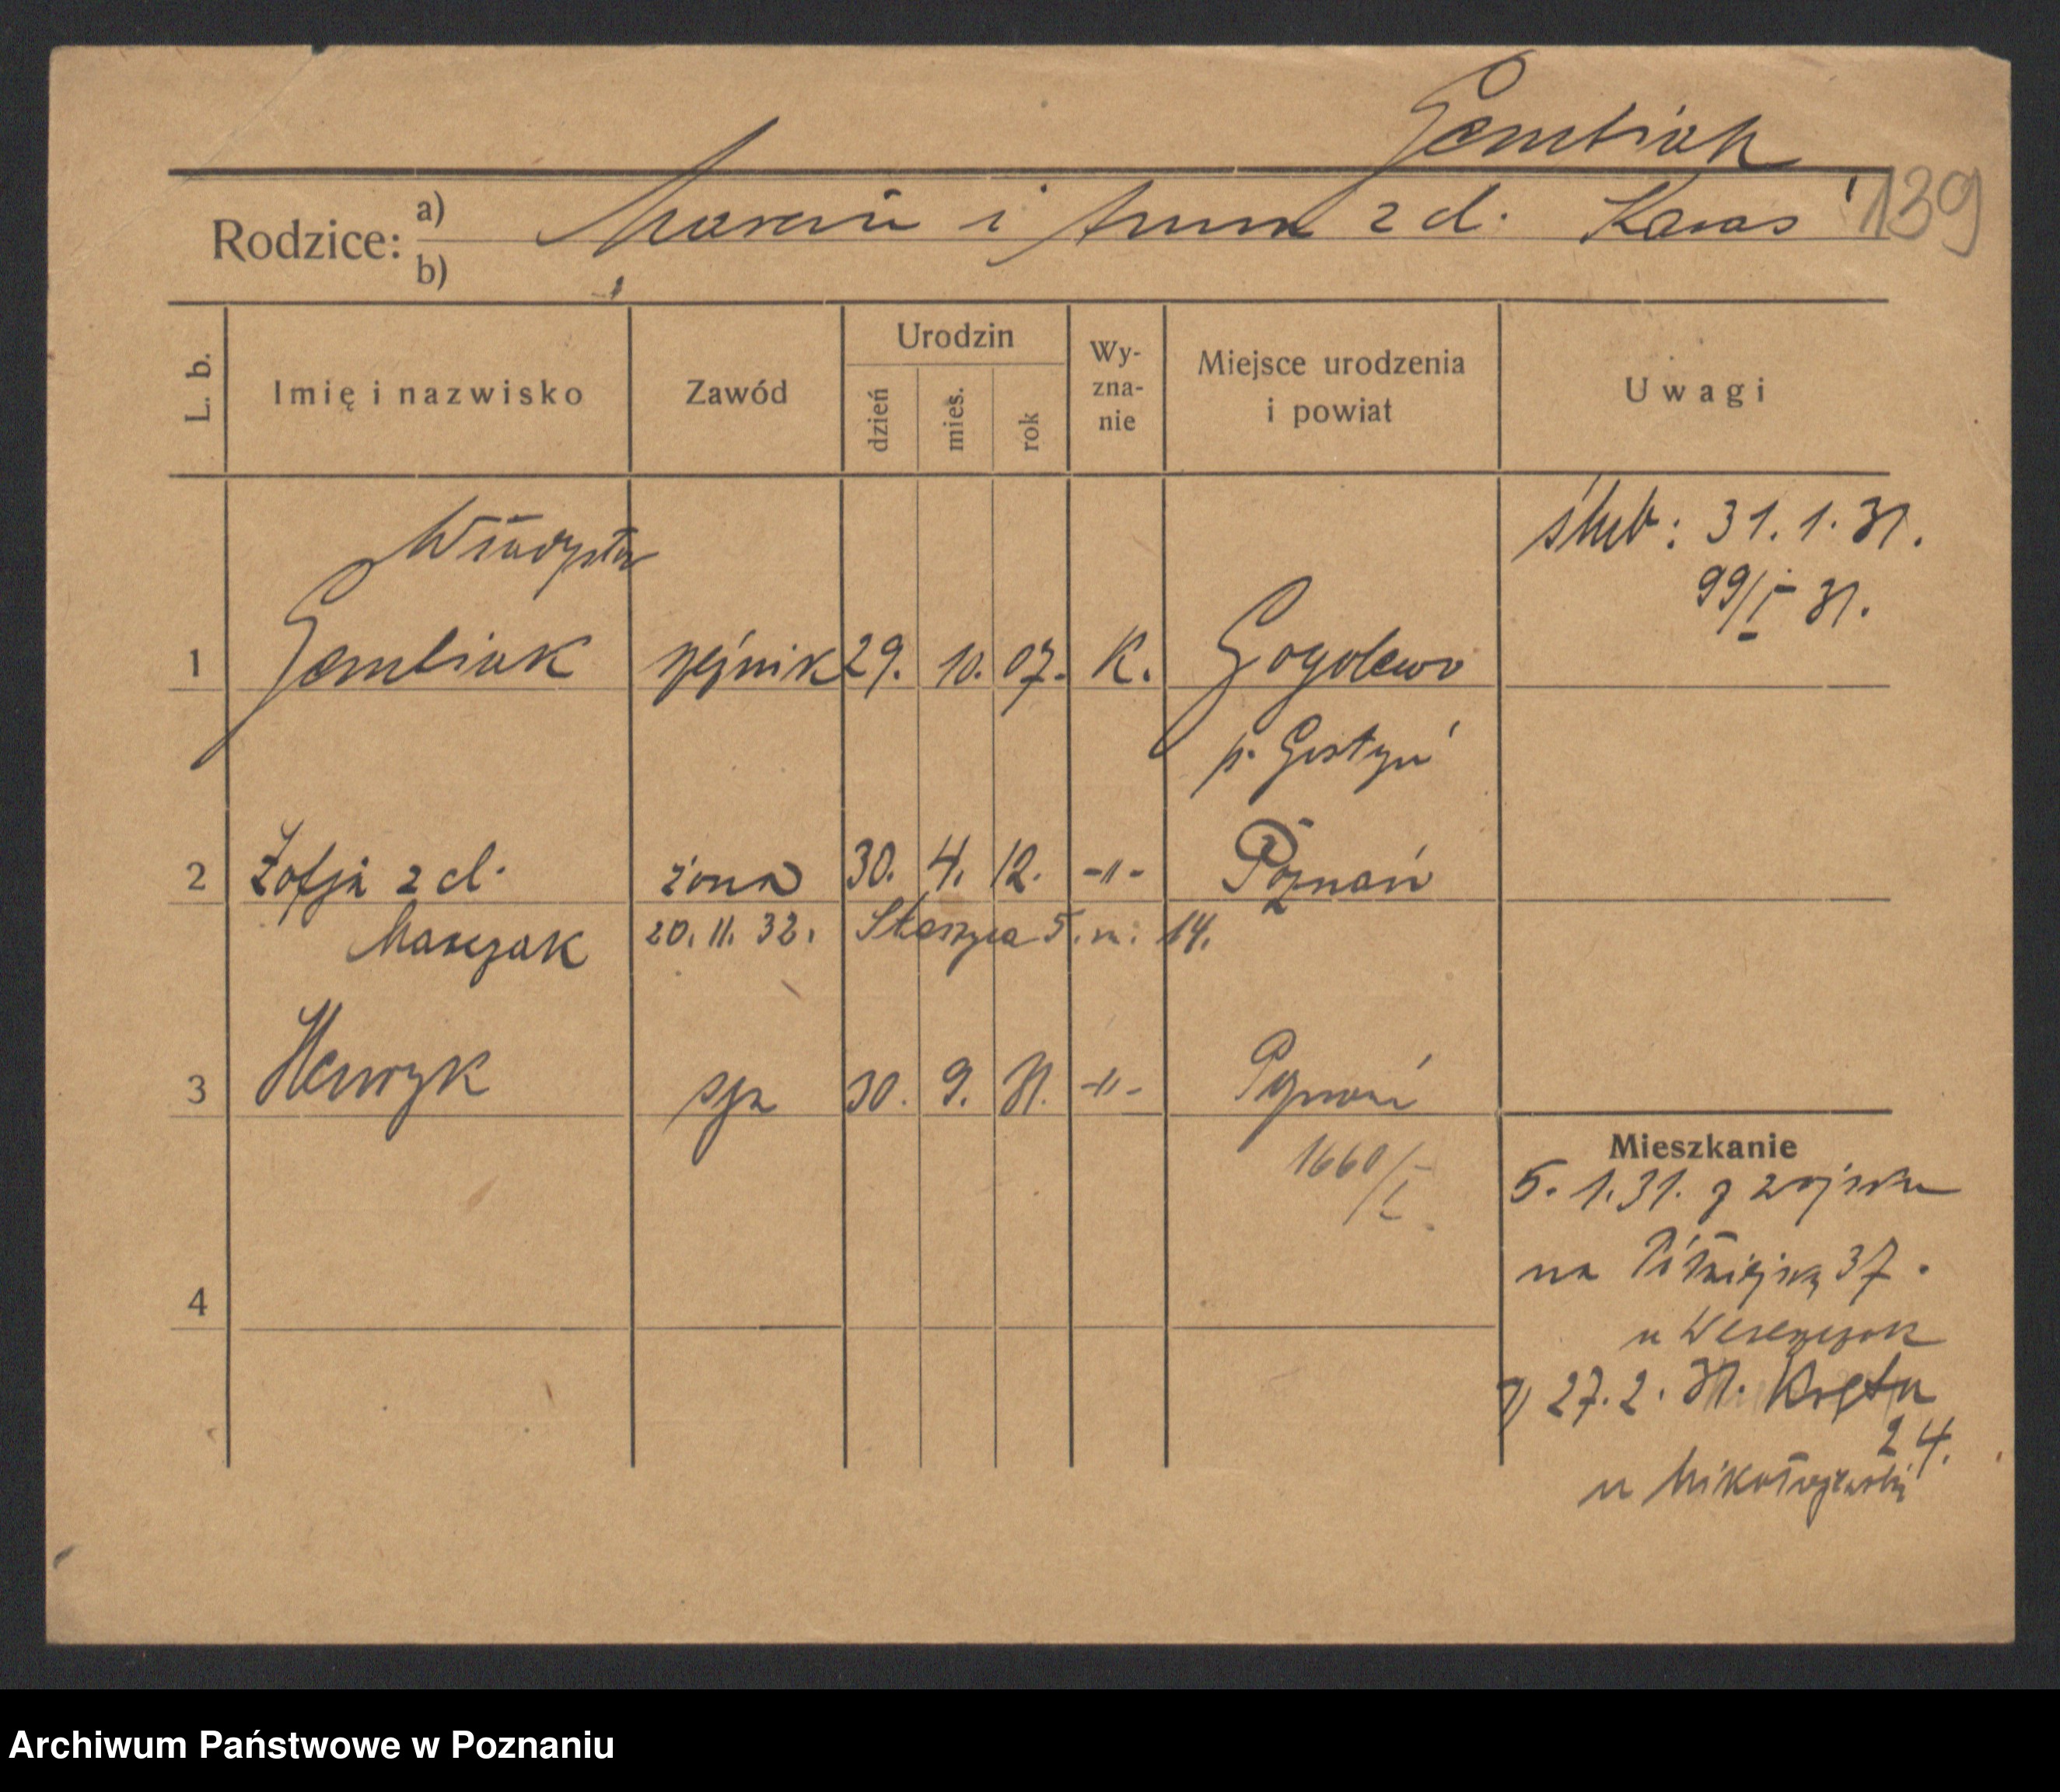 Gembiak
139
Rodzice: a) Marcin i Anna z d. Karaś
b)
L. b. Imię i nazwisko Zawód Urodzin dzień mies. rok Wy-zna-nie Miejsce urodzenia i powiat Uwagi
Władysław
ślub: 31.1.31.
99/I 31.
1 Gembiak 29. 10. 07. K. Gogolewo
p. Gostyń
2 Zofja z d. żona 30. 4. 12. -"- Poznań
Marczak 20. 11. 32. Staszyca 5. m. 14.
3 Henryk syn 30. 9. 31. -"- Poznań
1660/I.
4
Mieszkanie
5. 1. 31. z wojska
na 37.
u
27. 2. 31. Kręta
24.
u Mikołajewski
Archiwum Państwowe w Poznaniu